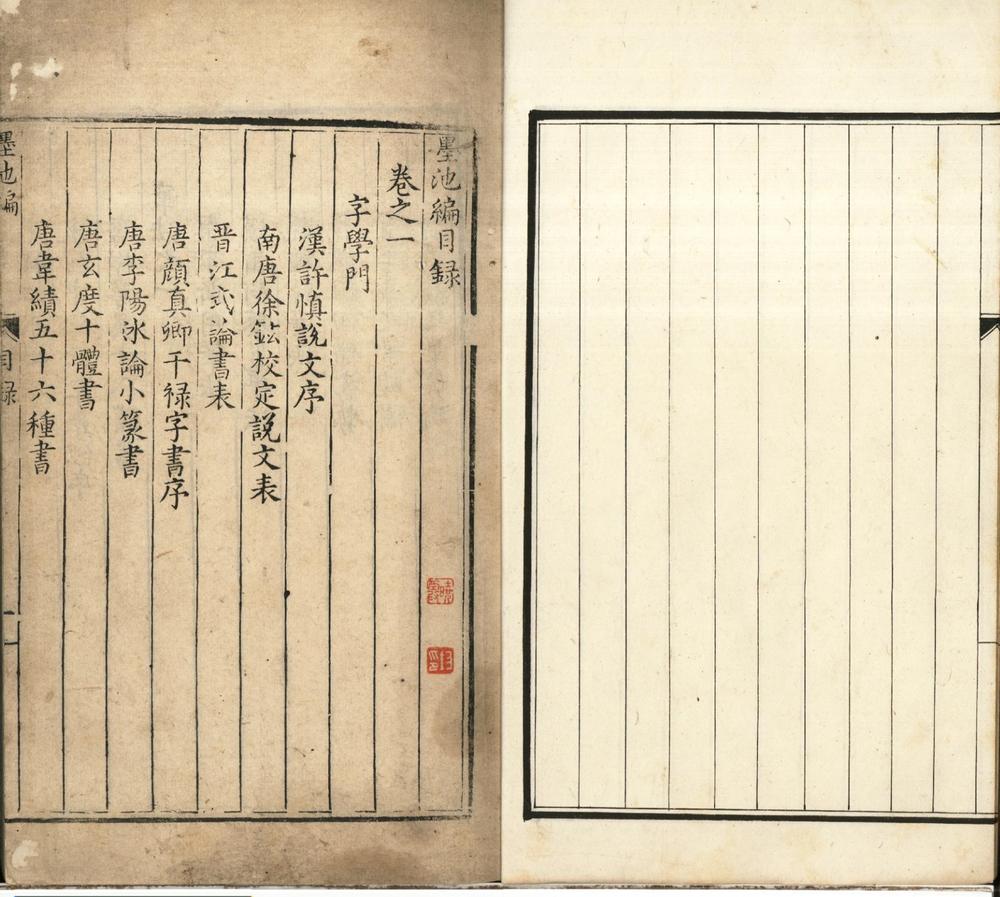 墨池編目録
卷之一
字學門
漢許慎說文序
南唐徐鉉校定說文表
晋江式論書表
唐顔真卿干禄字書序
唐李陽冰論小篆書
唐玄度十體書
唐韋續五十六種書
墨池編
目録
一